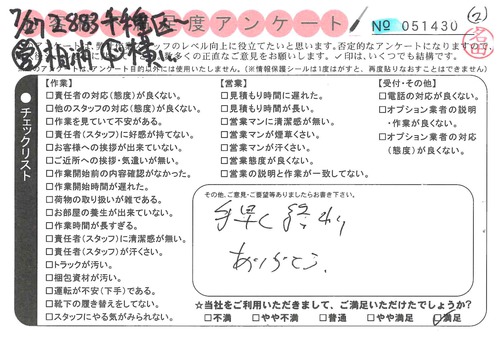 7/27 金 883 千種区〜
度アンケート
№ 051430
②
スタッフのレベル向上に役立てたいと思います。否定的なアンケートになりますので
多くの正直なご意見をお願いします。✓印は、いくつでも結構です。
アンケート目的以外には使用いたしません。(※情報保護シールは1度はがすと、再度貼りなおすことはできません)
● チェックリスト
【作業】
□責任者の対応(態度)が良くない。
□他のスタッフの対応(態度)が良くない。
□作業を見ていて不安がある。
□責任者(スタッフ)に好感が持てない。
□お客様への挨拶が出来ていない。
□ご近所への挨拶・気遣いが無い。
□作業開始前の内容確認がなかった。
□作業開始時間が遅れた。
□荷物の取り扱いが雑である。
□お部屋の養生が出来ていない。
□作業時間が長すぎる。
□責任者(スタッフ)に清潔感が無い。
□責任者(スタッフ)が汗くさい。
□トラックが汚い。
□梱包資材が汚い。
□運転が不安(下手)である。
□靴下の履き替えをしてない。
□スタッフにやる気がみられない。
【営業】
□見積もり時間に遅れた。
□見積もり時間が長い。
□営業マンに清潔感が無い。
□営業マンが煙草くさい。
□営業マンが汗くさい。
□営業態度が良くない。
□営業の説明と作業が一致してない。
【受付・その他】
□電話の対応が良くない。
□オプション業者の説明
・作業が良くない。
□オプション業者の対応
(態度)が良くない。
その他、ご意見・ご要望等ありましたらお書き下さい。
早く終わり
ありがとう。
☆当社をご利用いただきまして、ご満足いただけたでしょうか?
□不満 □やや不満 □普通 □やや満足 ☑満足